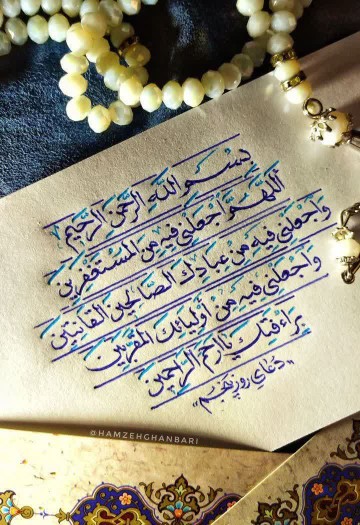 بِسْمِ اللهِ الرَّحْمنِ الرَّحيمِ
اَللّهُمَّ اجْعَلْني فيهِ مِنَ الْمُسْتَغْفِرينَ
وَاجْعَلْني فيهِ مِنْ عِبادِكَ الصّالِحينَ الْقانِتينَ
وَاجْعَلْني فيهِ مِنْ أَوْلِيائِكَ الْمُقَرَّبينَ
بِرَأْفَتِكَ يا أَرْحَمَ الرّاحِمينَ
"دعای روز پنجم"
@HAMZEHGHANBARI